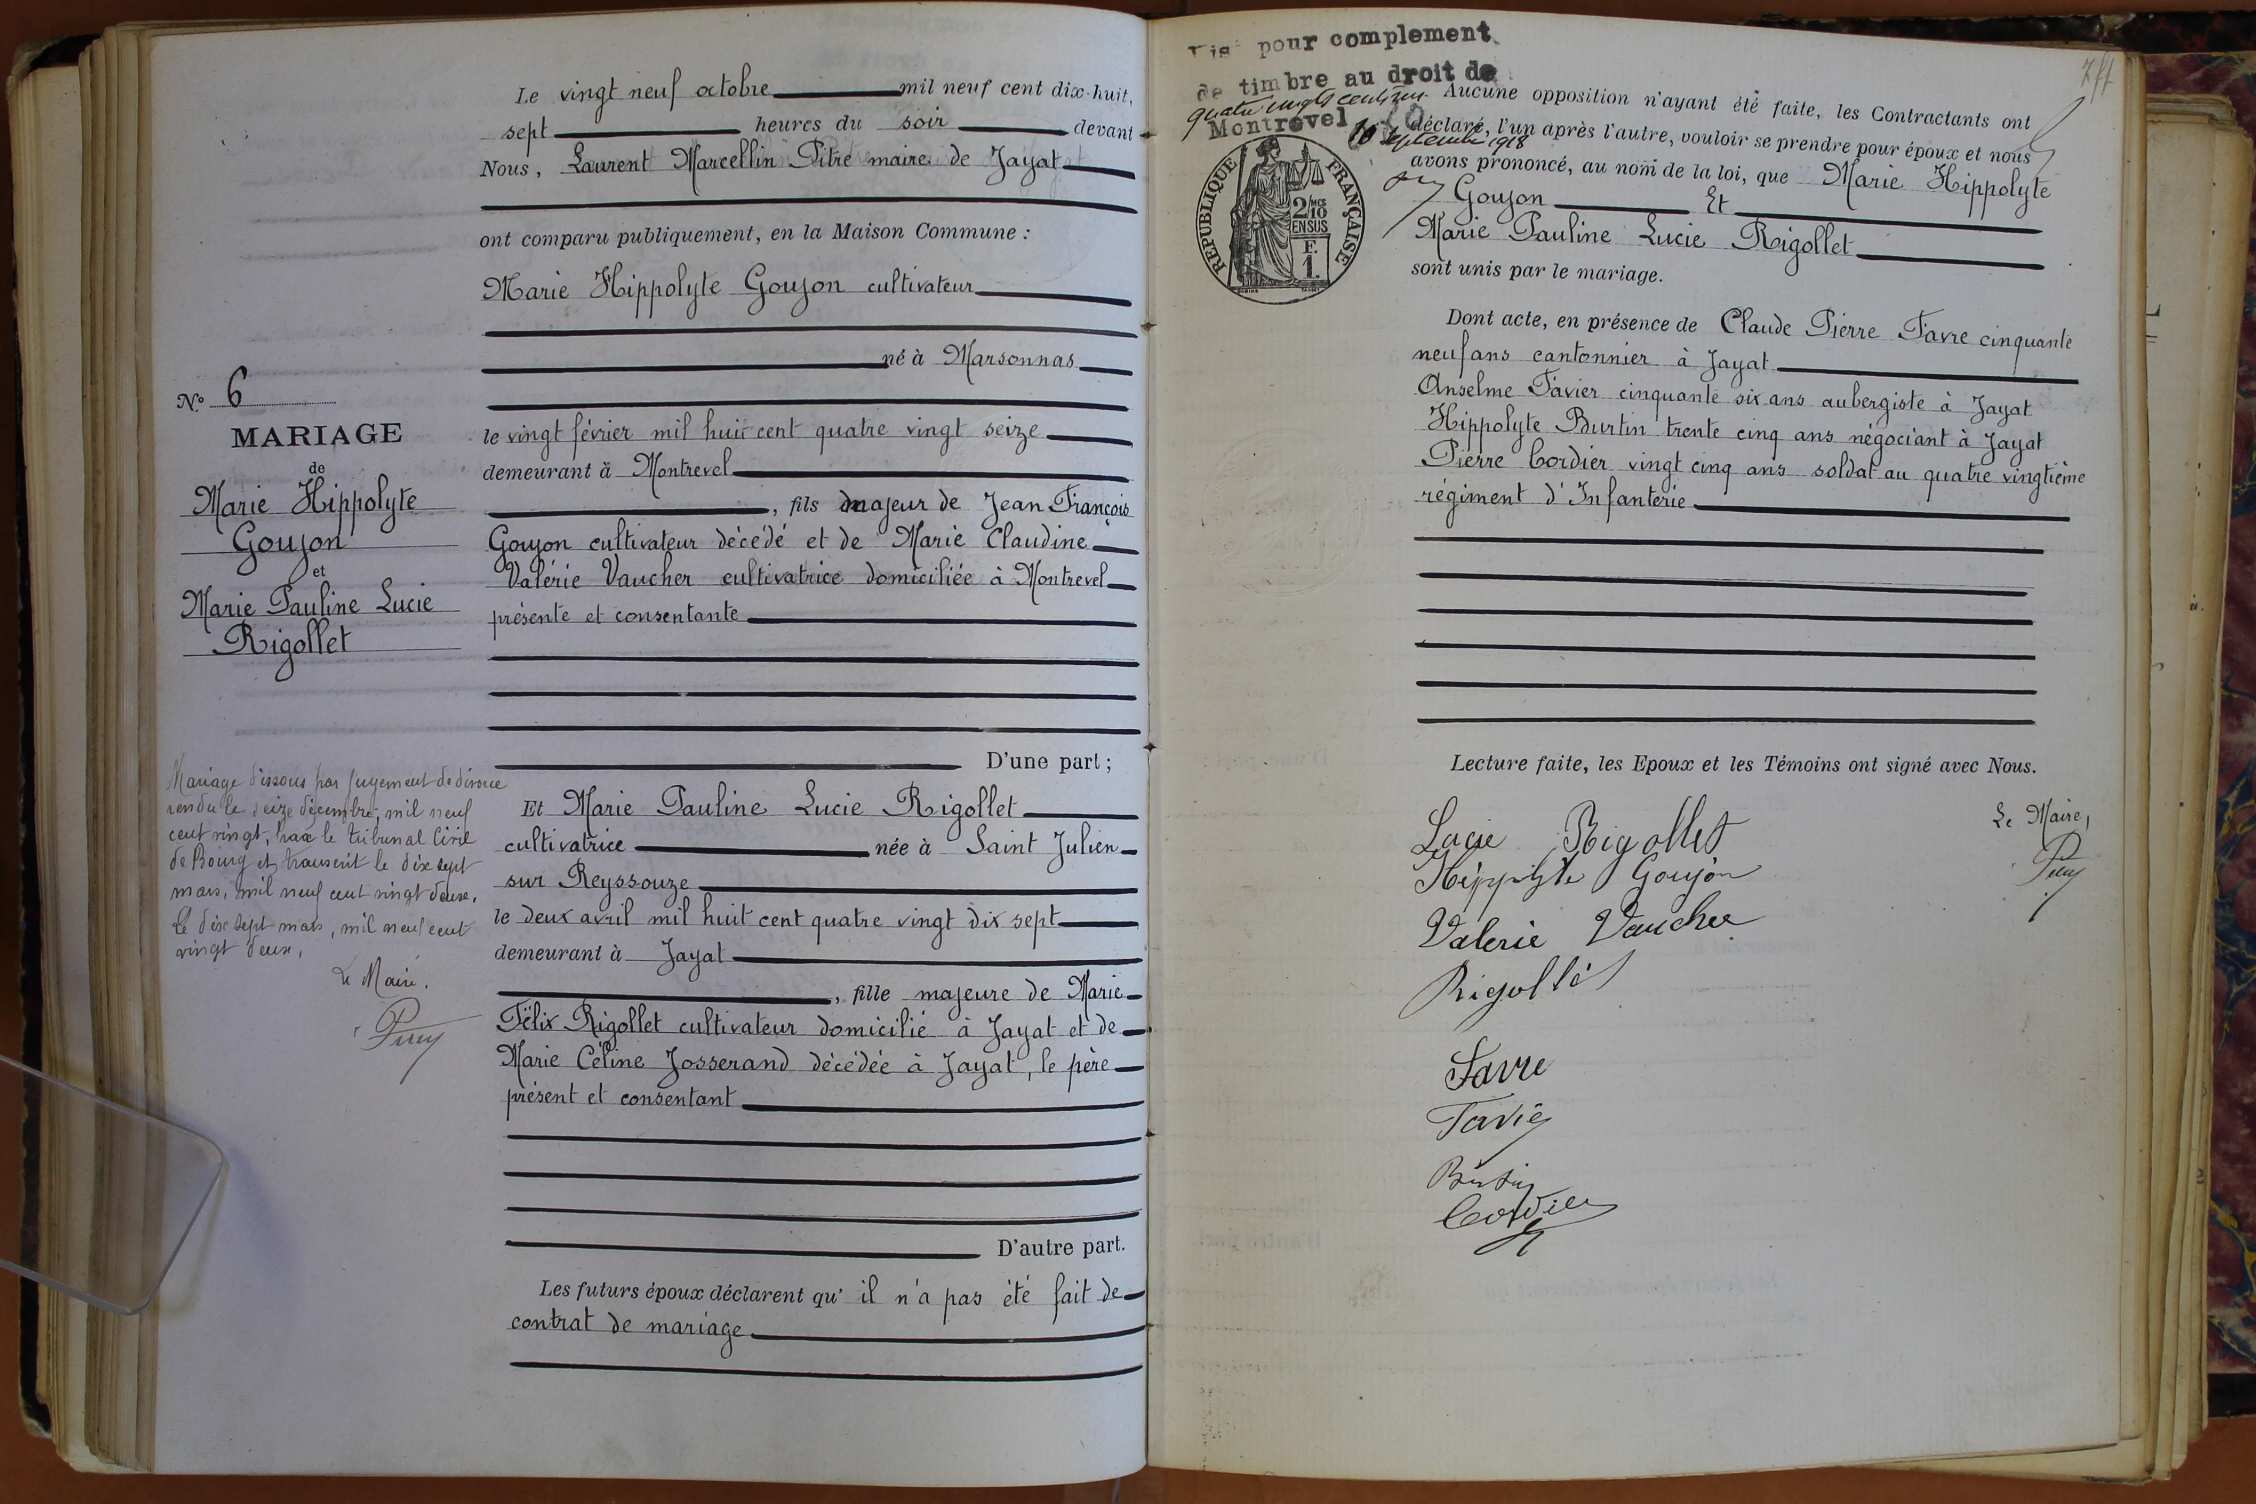 Le vingt neuf octobre mil neuf cent dix-huit,
sept heures du soir devant
Nous, Laurent Marcellin Pitre maire de Jayat
ont comparu publiquement, en la Maison Commune :
Marie Hippolyte Goujon cultivateur
né à Marsonnas
le vingt février mil huit cent quatre vingt seize
demeurant à Montrevel
, fils majeur de Jean François
Goujon cultivateur décédé et de Marie Claudine
Valérie Vaucher cultivatrice domiciliée à Montrevel
présente et consentante
D'une part ;
Et Marie Pauline Lucie Rigollet
cultivatrice née à Saint Julien
sur Reyssouze
le deux avril mil huit cent quatre vingt dix sept
demeurant à Jayat
, fille majeure de Marie
Félix Rigollet cultivateur domicilié à Jayat et de
Marie Céline Josserand décédée à Jayat, le père
présent et consentant
D'autre part.
Les futurs époux déclarent qu' il n'a pas été fait de
contrat de mariage
N.º 6
MARIAGE
de
Marie Hippolyte
Goujon
et
Marie Pauline Lucie
Rigollet
Mariage dissous par jugement de divorce
rendu le seize décembre, mil neuf
cent vingt, par le tribunal Civil
de Bourg et transcrit le dix sept
mars, mil neuf cent vingt deux.
Le dix sept mars, mil neuf cent
vingt deux.
Le Maire.
pour complement
de timbre au droit de
quatre vingts centimes
Montrevel 10 septembre 1918
REPUBLIQUE FRANÇAISE
2/10
EN SUS
F.
1.
Aucune opposition n'ayant été faite, les Contractants ont
déclaré, l'un après l'autre, vouloir se prendre pour époux et nous
avons prononcé, au nom de la loi, que Marie Hippolyte
Goujon Et
Marie Pauline Lucie Rigollet
sont unis par le mariage.
Dont acte, en présence de Claude Pierre Favre cinquante
neuf ans cantonnier à Jayat
Anselme Favier cinquante six ans aubergiste à Jayat
Hippolyte Burtin trente cinq ans négociant à Jayat
Pierre Cordier vingt cinq ans soldat au quatre vingtième
régiment d'Infanterie
Lecture faite, les Epoux et les Témoins ont signé avec Nous.
Le Maire,
Lucie Rigollet
Hippolyte Goujon
Valerie Vaucher
Rigollet
Favre
Favier
Burtin
Cordier